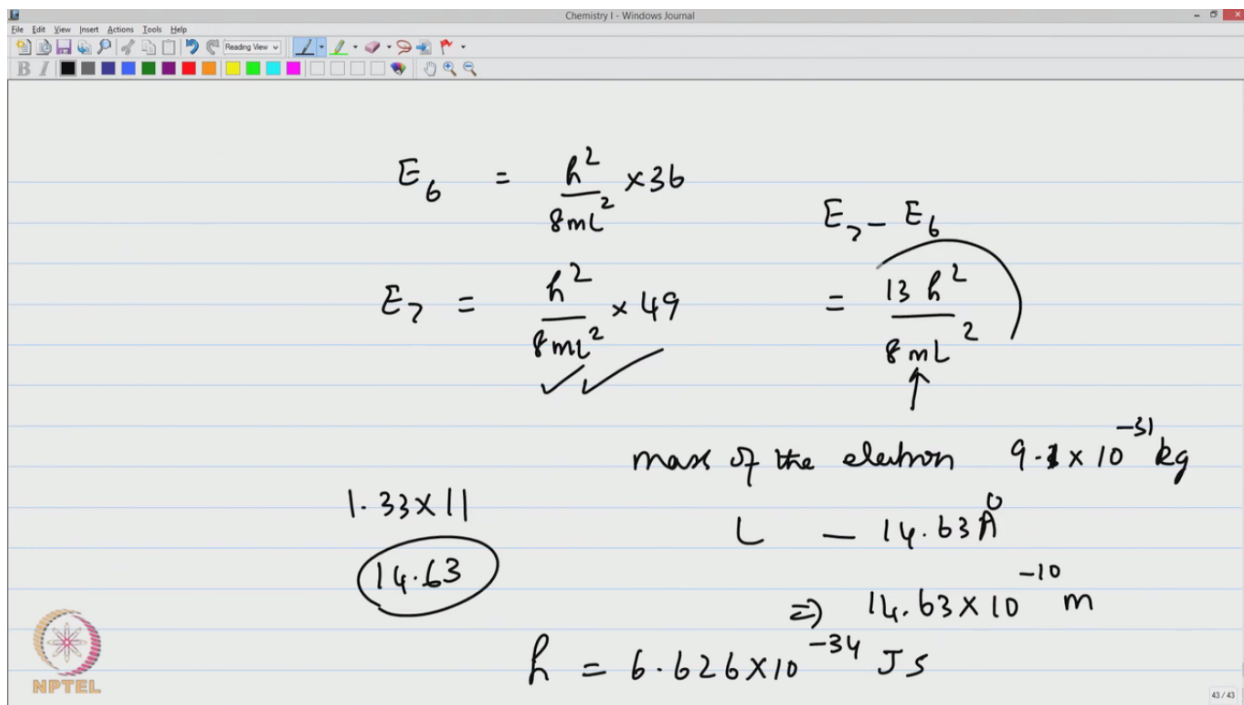 Chemistry I - Windows Journal
File Edit View Insert Actions Tools Help
Reading View
B I
E₆ = h²/8mL² × 36
E₇ - E₆
E₇ = h²/8mL² × 49
= 13 h²/8mL²
mass of the electron 9.1 × 10⁻³¹ kg
1.33 × 11
L — 14.63 Å
14.63
⇒ 14.63 × 10⁻¹⁰ m
h = 6.626 × 10⁻³⁴ J s
NPTEL
43 / 43